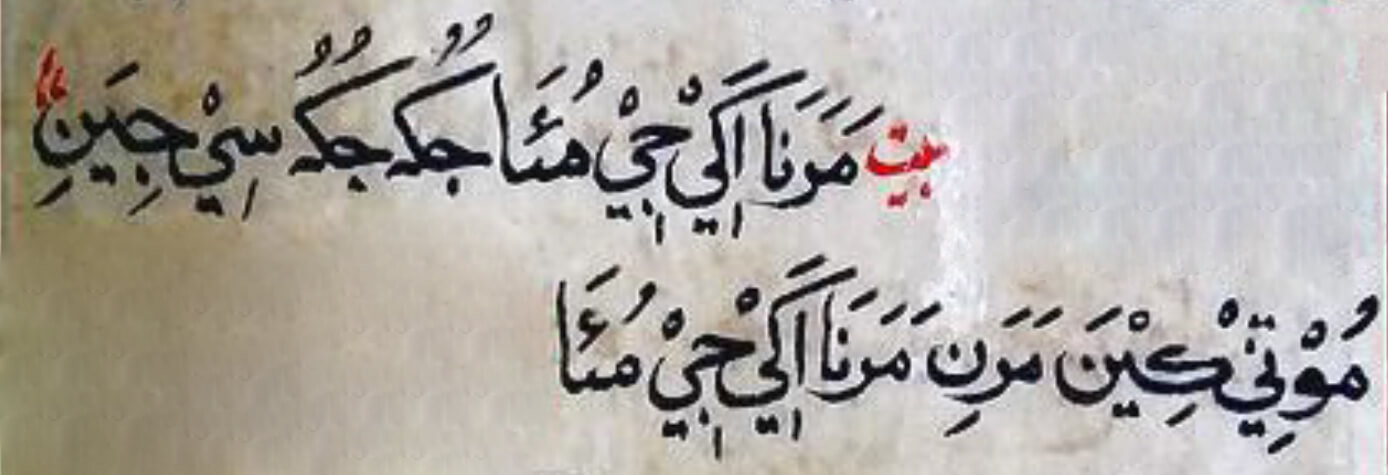 بيت مَرَنَا اَکٖيْ جٖيْ مُئَا جُکُہْ جُکُہْ سٖيْ جِيَنِ
مُوْتِيْ کِيْنَ مَرَنِ مَرَنَا اَکٖيْ جٖيْ مُئَا